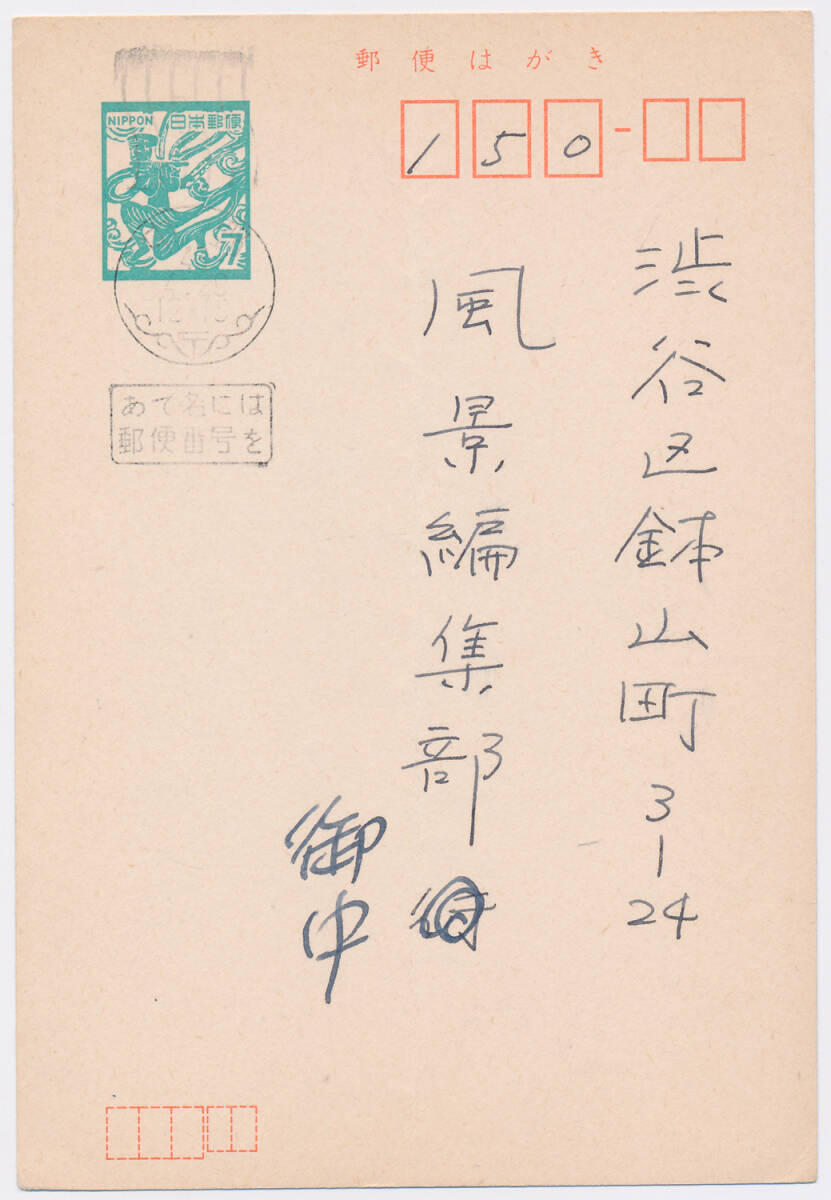 郵便はがき
NIPPON 日本郵便
7
150
あて名には
郵便番号を
渋谷区鉢山町3-24
風景編集部
御中